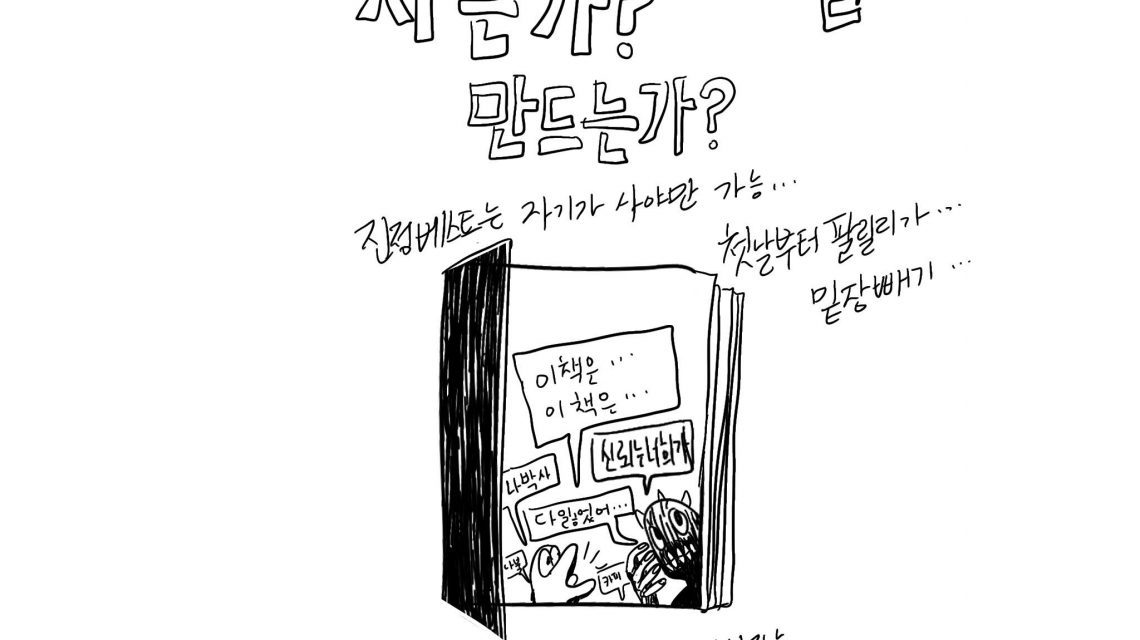 는가?
만드는가?
진정베스트는 자기가 사야만 가능...
첫날부터 팔릴리가...
밑장빼기...
이책은...
이책은...
신뢰는너희가
나박사
다잃었어...
나북
카피